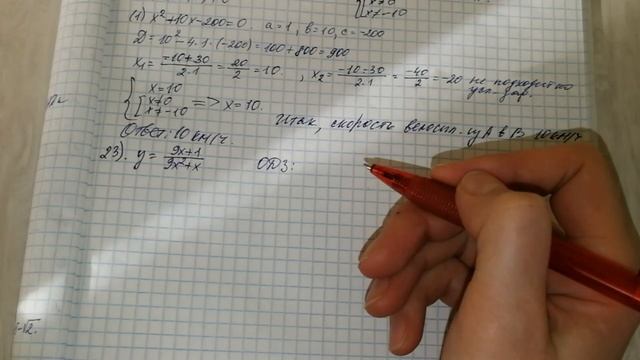 x≠0
x≠-10
(1) x²+10x-200=0 a=1, b=10, c=-200
D=10²-4·1·(-200)=100+800=900
x₁=(-10+30)/(2·1)=20/2=10. , x₂=(-10-30)/(2·1)=-40/2=-20 не подходит по
усл. зад.
{x=10
[x≠0 => x=10.
x≠-10
Итак, скорость велосип. из A в B 10км/ч
Ответ: 10 км/ч.
23). y=(9x+1)/(9x²+x) ОДЗ:
-√2.